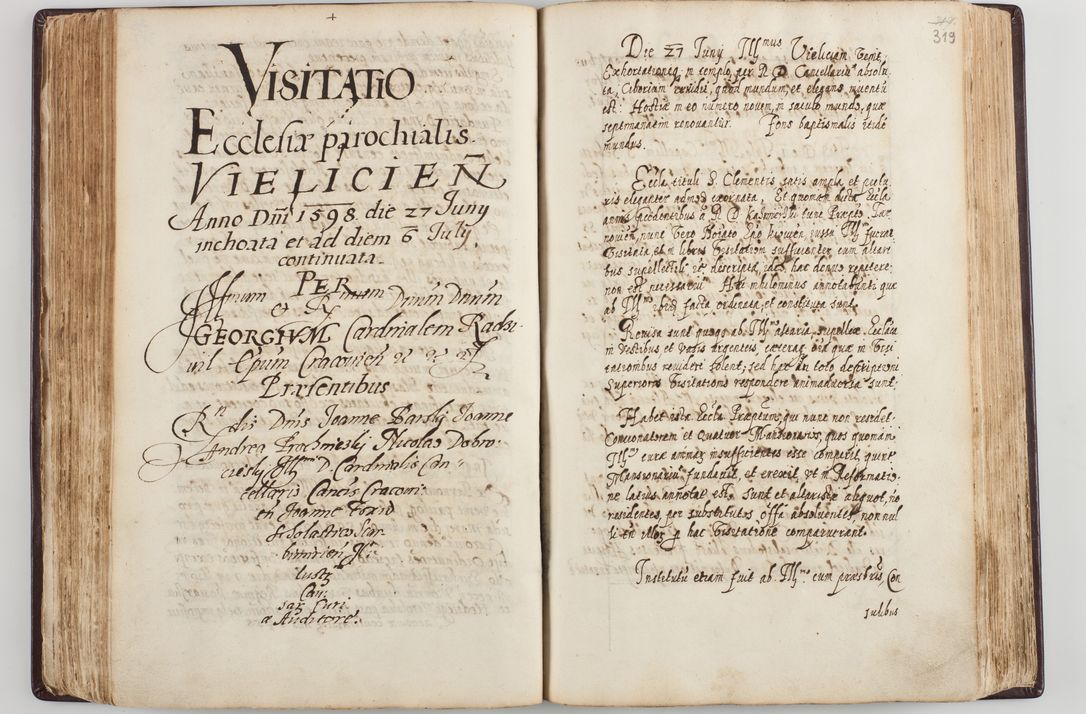 VISITATIO
Ecclesiæ parochialis
VIELICIEÑ
Anno Dñi 1598. die 27 Iunÿ
inchoata et ad diem 6 Iulÿ
continuata.
PER
Illrum et Rmum Dnum Dnum
GEORGIVM Cardinalem Radzi
uil Epum Cracovień
Præsentibus
Rndis Dnis Ioanne Barskÿ Ioanne
Andrea Prochnickÿ Nicolao Dobro
cieskÿ Illmi D. Cardinalis Can
cellario Cancis Cracovi
eń Ioanne Foxio
scholastico Scar
bimirień
Cau
sarz Curi
æ Auditore.
319
Die 27 Iunÿ Illmus Vieliciam venit
Exhortatione in templo per R D Cancellariũ absolu
ta, Ciborium revidit, quod mundum et elegans inventũ
est. Hostiæ in eo numero novem, in saculo mundo, quæ
septimanatim renovantur. Fons baptismalis itidẽ
mundus.
Eccla tituli S. Clementis satis ampla et pictu
ris eleganter admodũ exornata. Et quoniam dicta Eccla
annis præcedentibus a R D Kazimirski tunc Præpto Tar
novień, nunc vero Epo Kijovień, iussu Illmi fuerat
visitata, et in libris visitationum sufficienter cum altari
bus, supellectili etc descripta, ideo hac denuo repetere
non est necessariũ. At nihilominus annotabunt quæ
ab Illmo ibid facta ordinata et constituta sunt.
Revisa sunt quoque ab Illmo altaria, supellex Ecclæ
in vestibus et vasis argenteis, cæteraque oia quæ in visi
tationibus revideri solent; sed hæc in toto descriptioni
Superioris visitationis respondere animadversa sunt.
Habet ista Eccla Præptum, qui nunc non residet.
Concionatorem et Quatuor Mansionarios, quos quoniam
Illmus curæ animarum insufficientes esse comperit, quinque
Mansionarios fundavit, et erexit, ut in Reformatio
ne latius annotat est. Sunt et altaristæ aliquot, nõ
residentes, per substitutos offa absolventes, nonnul
li eń illorz in hac visitatione comparuerant.
Institutũ etiam fuit ab Illmo cum præsbris Con
sulibus